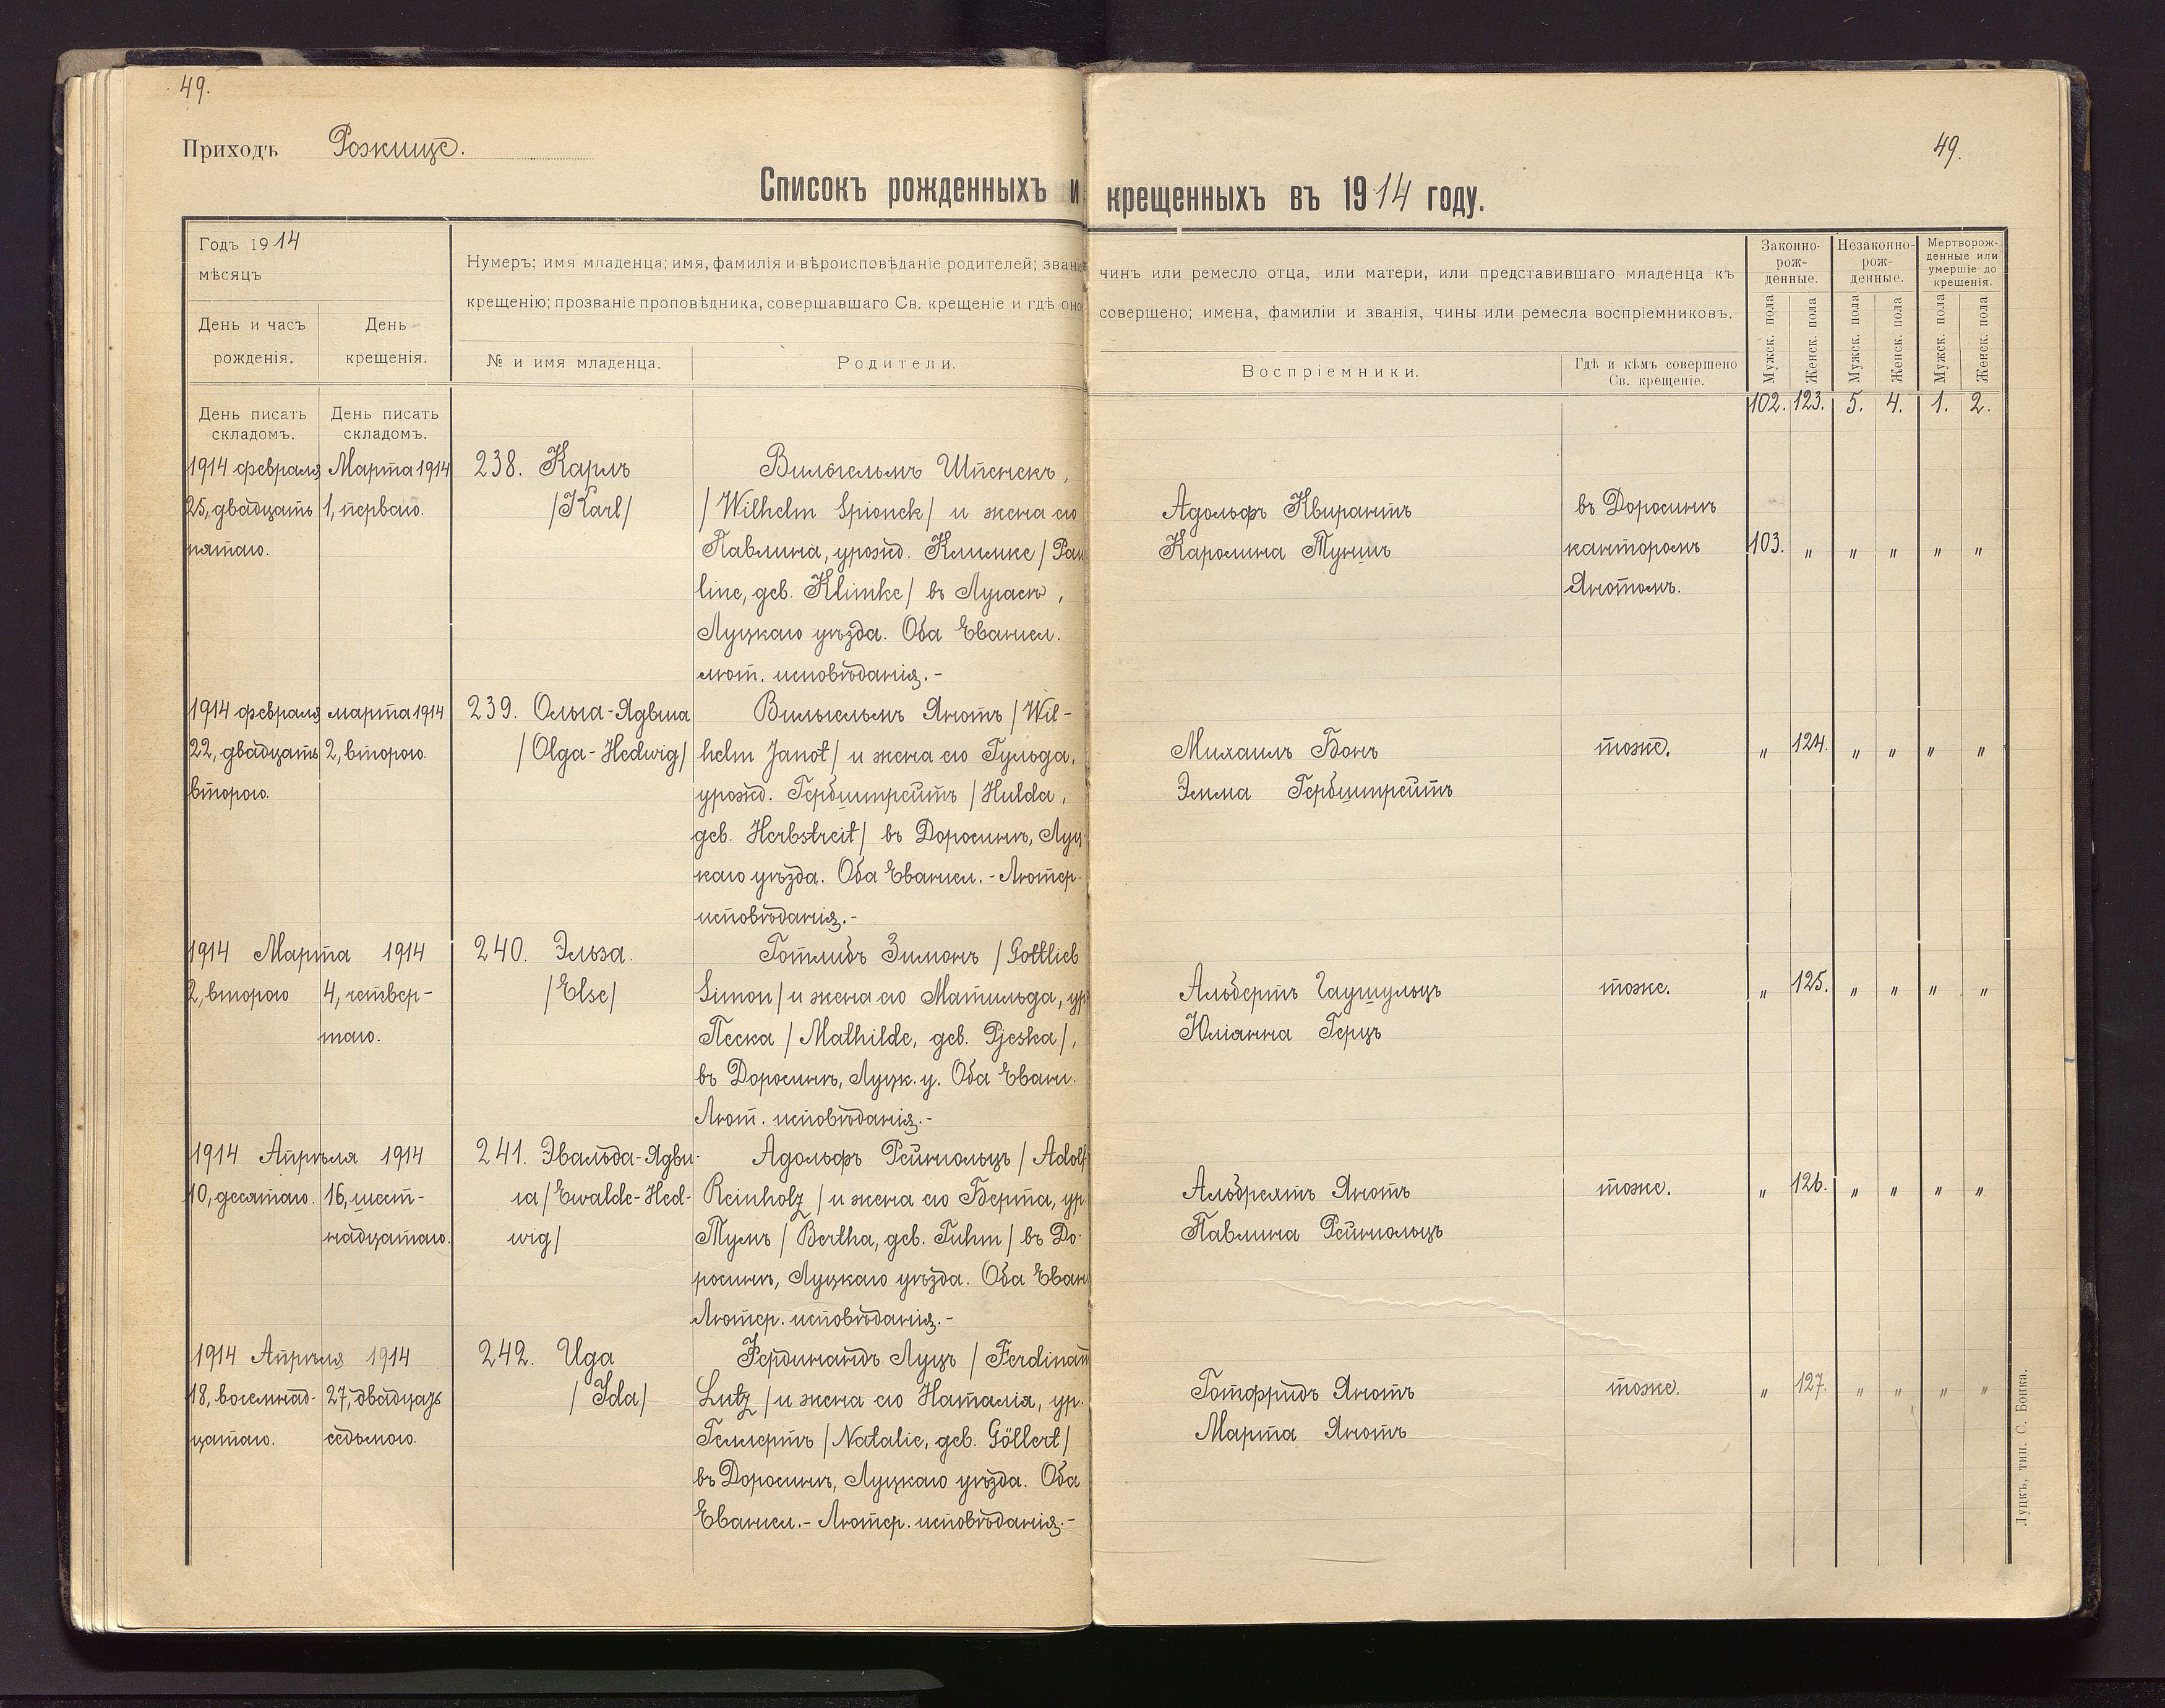 49.
Приходъ Рожище.
49.
Списокъ рожденныхъ и крещенныхъ въ 1914 году.
Годъ 1914
мѣсяцъ
День и часъ рожденія.
День крещенія.
Нумеръ; имя младенца; имя, фамилія и вѣроисповѣданіе родителей; званіе
чинъ или ремесло отца, или матери, или представившаго младенца къ
крещенію; прозваніе проповѣдника, совершавшаго Св. крещеніе и гдѣ оно
совершено; имена, фамиліи и званія, чины или ремесла воспріемниковъ.
№ и имя младенца.
Родители.
Воспріемники.
Гдѣ и кѣмъ совершено
Св. крещеніе.
Законно-
рож-
денные.
Незаконно-
рож-
денные.
Мертворож-
денные или
умершіе до
крещенія.
Мужск. пола
Женск. пола
Мужск. пола
Женск. пола
Мужск. пола
Женск. пола
День писать
складомъ.
День писать
складомъ.
102. 123. 5. 4. 1. 2.
1914 февраля
25, двадцать
пятаго.
Марта 1914
1, перваго.
238. Карлъ
/Karl/
Вильгельмъ Шпенекъ,
/Wilhelm Spionek/ и жена его
Павлина, урожд. Климке /Pau
line, geb. Klimke/ въ
Луцкаго уѣзда. Оба Евангел.
лют. исповѣданія.-
Адольфъ Квирантъ
Каролина Туншъ
въ Доросинѣ
канторомъ
Янотомъ.
103. " " " " "
1914 февраля
22, двадцать
второго.
марта 1914
2, второго.
239. Ольга-Ядвига
/Olga-Hedwig/
Вильгельмъ Янотъ /Wil-
helm Janot/ и жена его Гульда,
урожд. Гербштрейтъ /Hulda,
geb. Herbstreit/ въ Доросинѣ, Луц
каго уѣзда. Оба Евангел.-Лютер.
исповѣданія.-
Михаилъ Бонъ
Эмма Гербштрейтъ
тоже.
" 124. " " " "
1914 Марта 1914
2, второго
4, четвер-
таго.
240. Эльза.
/Else/
Готлибъ Зимонъ /Gottlieb
Simon/ и жена его Матильда, ур.
Песка /Mathilde, geb. Pjeska/,
въ Доросинѣ, Луцк. у. Оба Еванг.
Лют. исповѣданія.-
Альбертъ Гаушульцъ
Юліанна Герцъ
тоже.
" 125. " " " "
1914 Апрѣля 1914
10, десятаго.
16, шест-
надцатаго.
241. Эвальда-Ядви-
га /Ewalde-Hed-
wig/
Адольфъ Рейнгольцъ /Adolf
Reinholz/ и жена его Берта, ур.
Тумъ /Bertha, geb. Tuhm/ въ До-
росинѣ, Луцкаго уѣзда. Оба Еван
Лютер. исповѣданія.-
Альбрехтъ Янотъ
Павлина Рейнгольцъ
тоже.
" 126. " " " "
1914 Апрѣля 1914
18, восемнад-
цатаго.
27, двадцать
седьмого.
242. Ида
/Ida/
Фердинандъ Луцъ /Ferdinan
Lutz/ и жена его Наталія, ур.
Геллертъ /Natalie, geb. Göllert/
въ Доросинѣ, Луцкаго уѣзда. Оба
Евангел.-Лютер. исповѣданія.-
Готфридъ Янотъ
Марта Янотъ
тоже.
" 127. " " " "
Луцкъ, тип. С. Бонка.